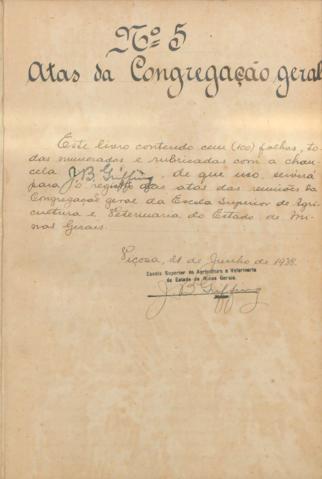 Nº 5
Atas da Congregação geral
Este livro contendo cem (100) folhas, to
das numeradas e rubricadas com a chan-
cela J B Griffing, de que uso, servirá
para o registo das atas das reuniões da
Congregação geral da Escola Superior de Agri-
cultura e Veterinaria do Estado de Mi-
nas Gerais.
Viçosa, 21 de Junho de 1938.
Escola Superior de Agricultura e Veterinaria
do Estado de Minas Gerais.
J B Griffing